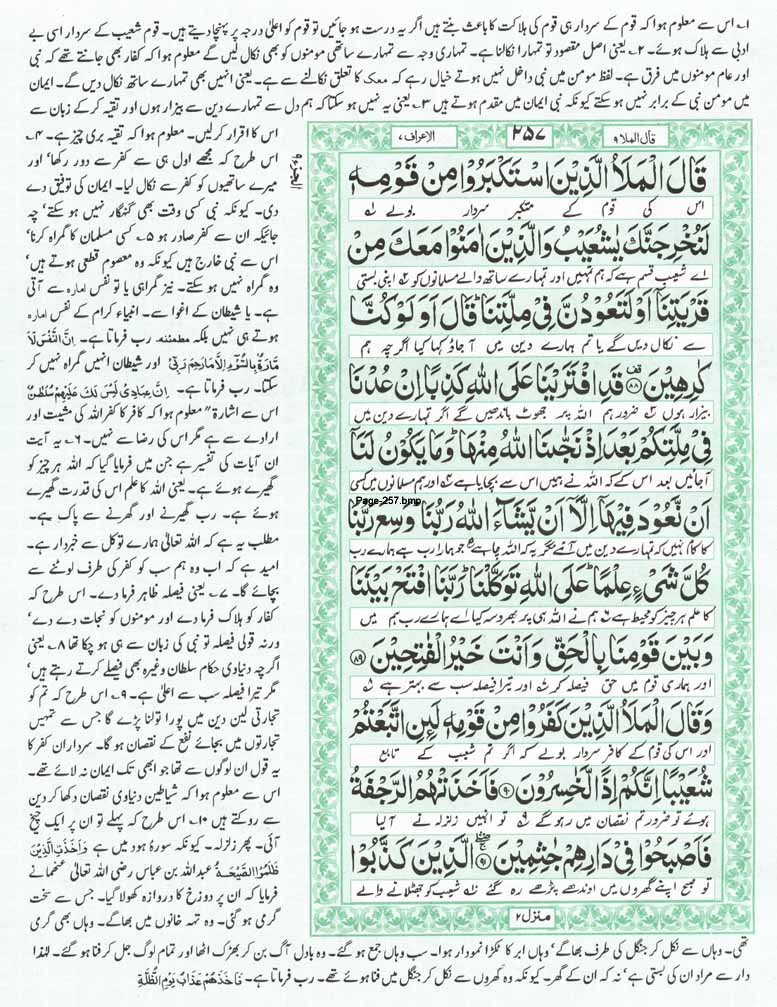 ۱۔ اس سے معلوم ہوا کہ قوم کے سردار ہی قوم کی ہلاکت کا باعث بنتے ہیں اگر یہ درست ہو جائیں تو قوم کو اعلیٰ درجہ پر پہنچا دیتے ہیں۔ قوم شعیب کے سردار اسی بے
ادبی سے ہلاک ہوئے۔ ۲۔ یعنی اصل مقصود تو تمہارا نکالنا ہے۔ تمہاری وجہ سے تمہارے ساتھی مومنوں کو بھی نکال لیں گے معلوم ہوا کہ کفار بھی جانتے تھے کہ نبی
اور عام مومنوں میں فرق ہے۔ لفظ مومن میں نبی داخل نہیں ہوتے خیال رہے کہ معک کا تعلق نکالنے سے ہے۔ یعنی انہیں بھی تمہارے ساتھ نکال دیں گے۔ ایمان
میں مومن نبی کے برابر نہیں ہو سکتے کیونکہ نبی ایمان میں مقدم ہوتے ہیں ۳۔ یعنی یہ نہیں ہو سکتا کہ ہم دل سے تمہارے دین سے بیزار ہوں اور تقیہ کر کے زبان سے
قال الملا ۹
۲۵۷
الاعراف ۷
قَالَ الْمَلَاُ الَّذِيْنَ اسْتَكْبَرُوْا مِنْ قَوْمِهٖ
اس کی قوم کے متکبر سردار بولے
لَنُخْرِجَنَّكَ يٰشُعَيْبُ وَالَّذِيْنَ اٰمَنُوْا مَعَكَ مِنْ
اے شعیب قسم ہے کہ ہم تمہیں اور تمہارے ساتھ والے مسلمانوں کو اپنی بستی
قَرْيَتِنَا اَوْ لَتَعُوْدُنَّ فِيْ مِلَّتِنَا قَالَ اَوَلَوْ كُنَّا
سے نکال دیں گے یا تم ہمارے دین میں آجاؤ کہا کیا اگرچہ ہم
كٰرِهِيْنَ ۸۸ قَدِ افْتَرَيْنَا عَلَى اللّٰهِ كَذِبًا اِنْ عُدْنَا
بیزار ہوں ضرور ہم اللہ پر جھوٹ باندھیں گے اگر تمہارے دین میں
فِيْ مِلَّتِكُمْ بَعْدَ اِذْ نَجّٰىنَا اللّٰهُ مِنْهَا وَمَا يَكُوْنُ لَنَا
آجائیں بعد اس کے کہ اللہ نے ہمیں اس سے بچایا ہے اور ہم مسلمانوں میں کسی
Page-257.bmp
اَنْ نَّعُوْدَ فِيْهَا اِلَّا اَنْ يَّشَآءَ اللّٰهُ رَبُّنَا وَسِعَ رَبُّنَا
کا کام نہیں کہ تمہارے دین میں آئے مگر یہ کہ اللہ چاہے جو ہمارا رب ہے ہمارے رب
كُلَّ شَيْءٍ عِلْمًا عَلَى اللّٰهِ تَوَكَّلْنَا رَبَّنَا افْتَحْ بَيْنَنَا
کا علم ہر چیز کو محیط ہے ہم نے اللہ ہی پر بھروسہ کیا اے ہمارے رب ہم میں
وَبَيْنَ قَوْمِنَا بِالْحَقِّ وَاَنْتَ خَيْرُ الْفٰتِحِيْنَ ۸۹
اور ہماری قوم میں حق فیصلہ کر اور تیرا فیصلہ سب سے بہتر ہے
وَقَالَ الْمَلَاُ الَّذِيْنَ كَفَرُوْا مِنْ قَوْمِهٖ لَئِنِ اتَّبَعْتُمْ
اور اس کی قوم کے کافر سردار بولے کہ اگر تم شعیب کے تابع
شُعَيْبًا اِنَّكُمْ اِذًا لَّخٰسِرُوْنَ ۹۰ فَاَخَذَتْهُمُ الرَّجْفَةُ
ہوئے تو ضرور تم نقصان میں رہو گے تو انہیں زلزلہ نے آلیا
فَاَصْبَحُوْا فِيْ دَارِهِمْ جٰثِمِيْنَ ۹۱ الَّذِيْنَ كَذَّبُوْا
تو صبح اپنے گھروں میں اوندھے پڑے رہ گئے شعیب کو جھٹلانے والے
منزل ۲
اس کا اقرار کر لیں۔ معلوم ہوا کہ تقیہ بری چیز ہے۔ ۴۔
اس طرح کہ مجھے اول ہی سے کفر سے دور رکھا' اور
میرے ساتھیوں کو کفر سے نکال لیا۔ ایمان کی توفیق دے
دی۔ کیونکہ نبی کسی وقت بھی گنہگار نہیں ہو سکتے' چہ
جائیکہ ان سے کفر صادر ہو ۵۔ کسی مسلمان کا گمراہ کرنا'
اس سے نبی خارج ہیں کیونکہ وہ معصوم قطعی ہوتے ہیں'
وہ گمراہ نہیں ہو سکتے۔ نیز گمراہی یا تو نفس امارہ سے آتی
ہے۔ یا شیطان کے اغوا سے۔ انبیاء کرام کے نفس امارہ
ہوتے ہی نہیں بلکہ مطمئنہ۔ رب فرماتا ہے۔ اِنَّ النَّفْسَ لَاَ
مَّارَةٌ بِالسُّوْٓءِ اِلَّا مَا رَحِمَ رَبِّيْ اور شیطان انہیں گمراہ نہیں کر
سکتا۔ رب فرماتا ہے۔ اِنَّ عِبَادِيْ لَيْسَ لَكَ عَلَيْهِمْ سُلْطٰنٌ
اس سے اشارۃ" معلوم ہوا کہ کافر کا کفر اللہ کی مشیت اور
ارادے سے ہے مگر اس کی رضا سے نہیں۔ ۶۔ یہ آیت
ان آیات کی تفسیر ہے جن میں فرمایا گیا کہ اللہ ہر چیز کو
گھیرے ہوئے ہے۔ یعنی اللہ کا علم اس کی قدرت گھیرے
ہوئے ہے۔ رب گھیرنے اور گھرنے سے پاک ہے۔
مطلب یہ ہے کہ اللہ تعالیٰ ہمارے توکل سے خبردار ہے۔
امید ہے کہ اب وہ ہم سب کو کفر کی طرف لوٹنے سے
بچائے گا۔ ۷۔ یعنی فیصلہ ظاہر فرما دے۔ اس طرح کہ
کفار کو ہلاک فرما دے اور مومنوں کو نجات دے دے'
ورنہ قولی فیصلہ تو نبی کی زبان سے ہی ہو چکا تھا ۸۔ یعنی
اگرچہ دنیاوی حکام سلطان وغیرہ بھی فیصلے کرتے رہتے ہیں'
مگر تیرا فیصلہ سب سے اعلیٰ ہے۔ ۹۔ اس طرح کہ تم کو
تجارتی لین دین میں پورا تولنا پڑے گا جس سے تمہیں
تجارتوں میں بجائے نفع کے نقصان ہو گا۔ سرداران کفر کا
یہ قول ان لوگوں سے تھا جو ابھی تک ایمان نہ لائے تھے۔
اس سے معلوم ہوا کہ شیاطین دنیاوی نقصان دکھا کر دین
سے روکتے ہیں ۱۰۔ اس طرح کہ پہلے تو ان پر ایک چیخ
آئی۔ پھر زلزلہ۔ کیونکہ سورۃ ہود میں ہے وَاَخَذَتِ الَّذِيْنَ
ظَلَمُوا الصَّيْحَةُ عبداللہ بن عباس رضی اللہ تعالیٰ عنہما نے
فرمایا کہ ان پر دوزخ کا دروازہ کھولا گیا۔ جس سے سخت
گرمی ہو گئی۔ وہ تہہ خانوں میں بھاگے۔ وہاں بھی گرمی
تھی۔ وہاں سے نکل کر جنگل کی طرف بھاگے' وہاں ابر کا ٹکڑا نمودار ہوا۔ سب وہاں جمع ہو گئے۔ وہ بادل آگ بن کر بھڑک اٹھا اور تمام لوگ جل کر فنا ہو گئے۔ لہٰذا
دار سے مراد ان کی بستی ہے' نہ کہ ان کے گھر۔ کیونکہ وہ گھروں سے نکل کر جنگل میں فنا ہوئے تھے۔ رب فرماتا ہے۔ فَاَخَذَهُمْ عَذَابُ يَوْمِ الظُّلَّةِ